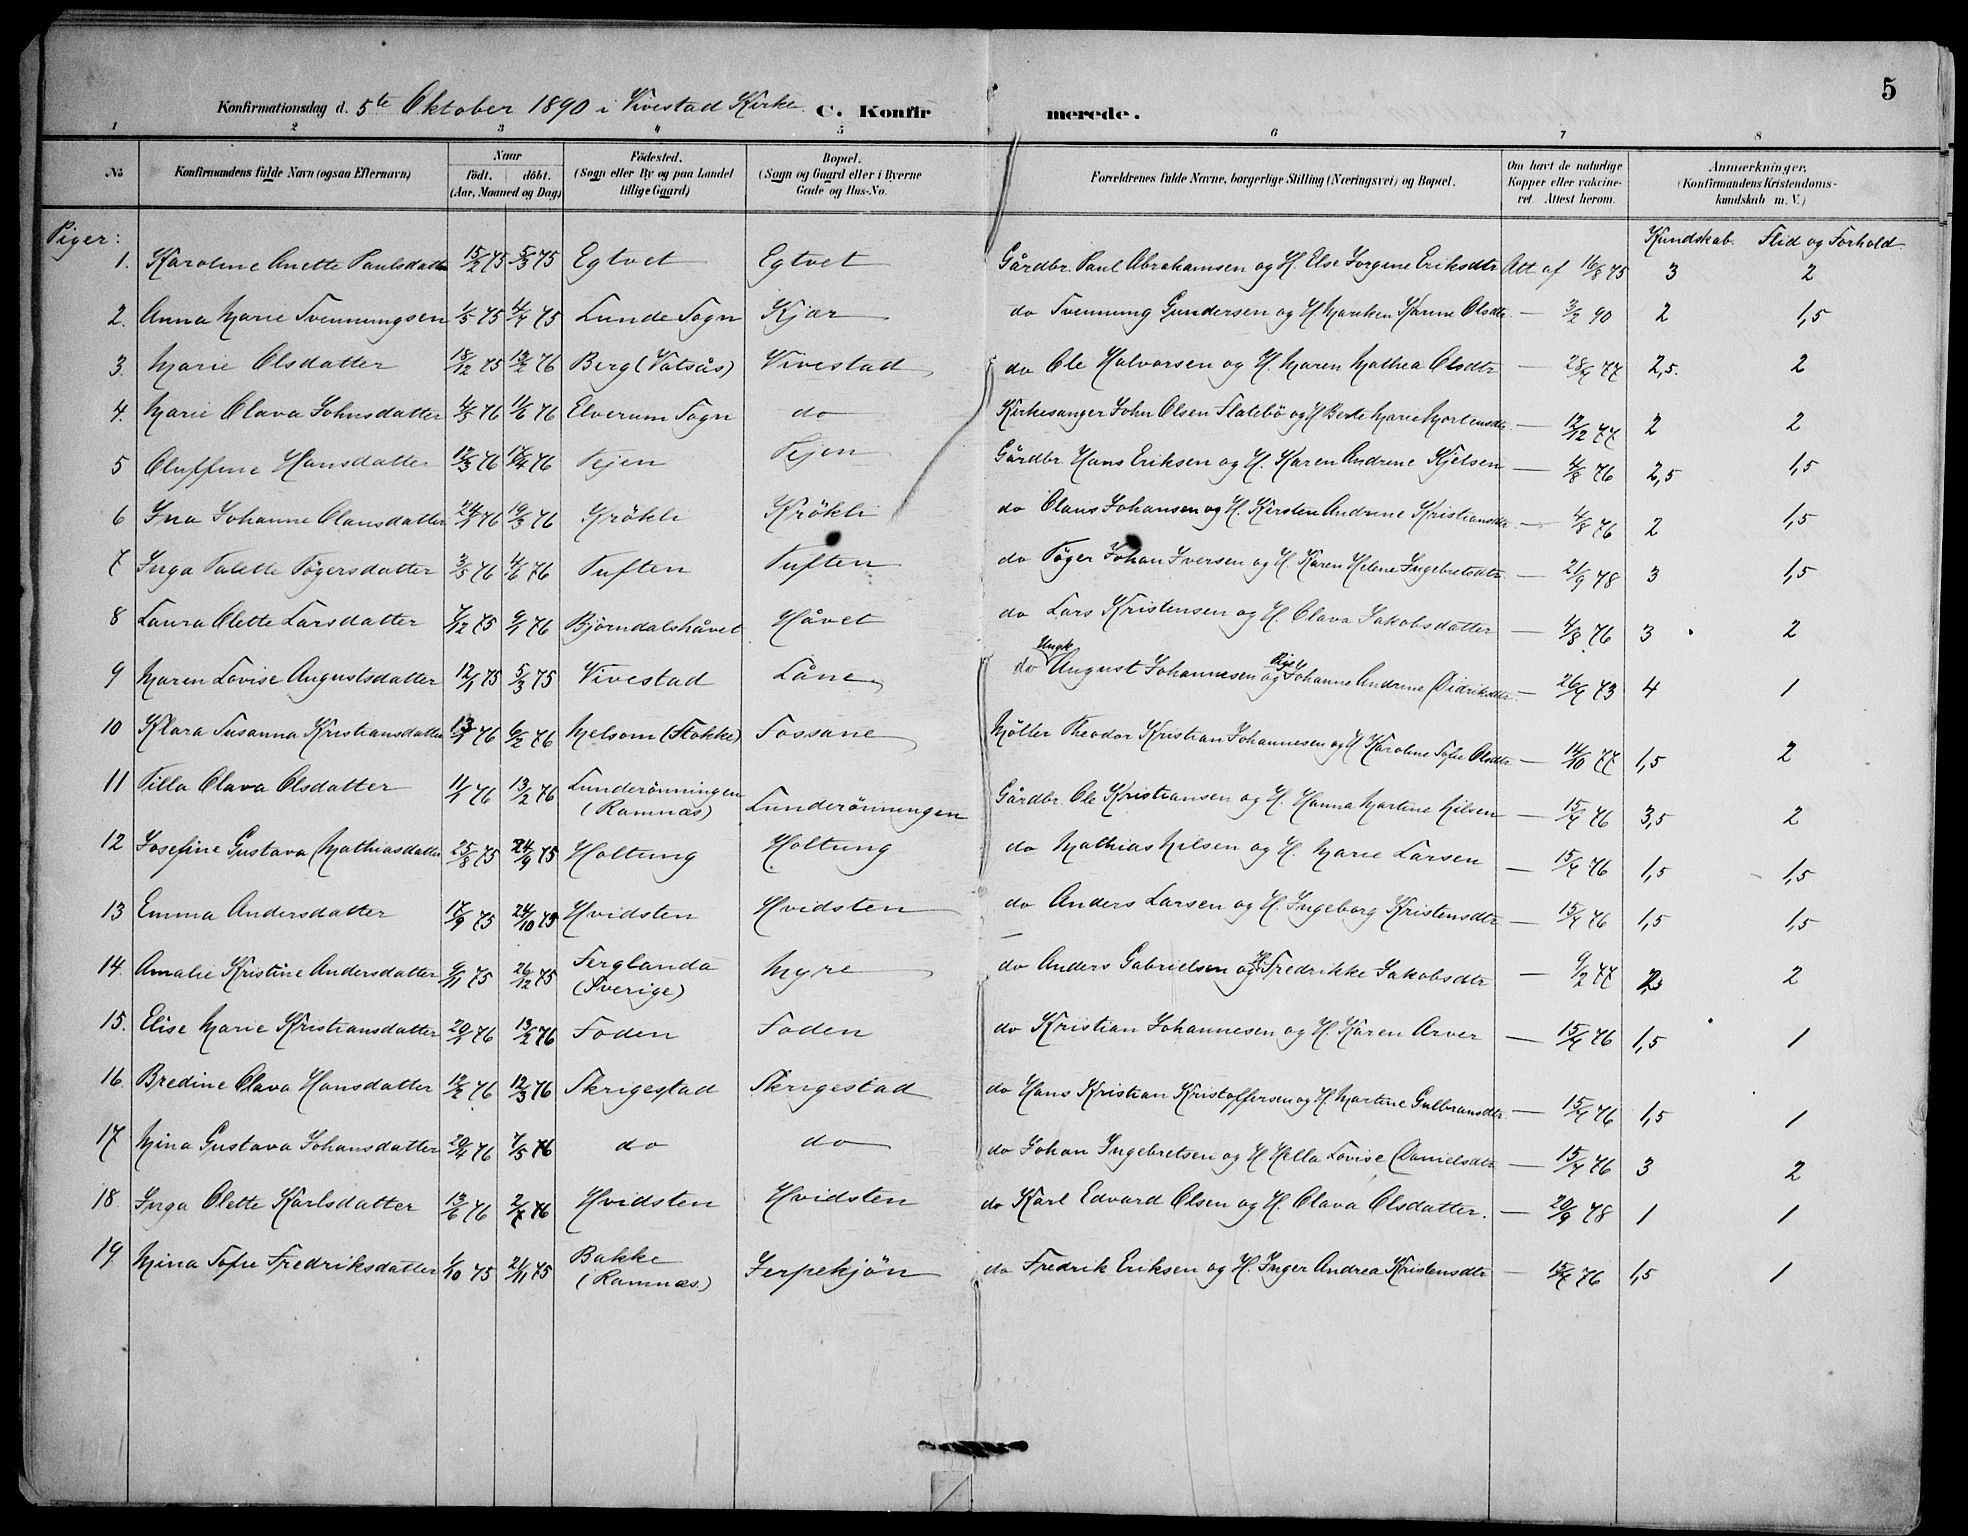 5
Konfirmationsdag d. 5te Oktober 1890 i Vivestad Kirke. C. Konfirmerede.
1 2 3 4 5 6 7 8
No. Konfirmandens fulde Navn (ogsaa Efternavn) Naar Født. døbt. (Aar, Maaned og Dag) Fødested. (Sogn eller By og paa Landet tillige Gaard) Bopæl. (Sogn og Gaard eller i Byerne Gade og Hus-No. Forældrenes fulde Navne, borgerlige Stilling (Næringsvei) og Bopæl. Om havt de naturlige Kopper eller vakcineret. Attest herom. Anmærkninger. (Konfirmandens Kristendomskundskab m. V.)
Piger: Kundskab. Flid og Forhold
1. Karoline Anette Paulsdatter 15/2 75 5/3 75 Egtvet Egtvet Gårdbr. Paul Abrahamsen og H. Else Jorgine Eriksdtr Att af 16/8 75 3 2
2. Anna Marie Svennungsen 1/5 75 4/7 75 Lunde Sogn Kjær do Svennung Gundersen og H. Hanne Olsdtr — 3/2 90 2 1,5
3. Marie Olsdatter 18/12 75 13/2 76 Berg (Vatsås) Vivestad do Ole Halvorsen og H. Maren Mathea Olsdtr — 28/4 77 2,5. 2
4. Marie Olava Johnsdatter 4/5 76 11/6 76 Elverum Sogn do Kirkesanger John Olsen Flatebö og H Berte Marie Mortensdtr — 12/12 77 2 2
5 Oluffine Hansdatter 12/3 76 17/4 76 Vejen Vejen Gårdbr. Hans Eriksen og H. Karen Andrine Kjelsen — 4/8 76 2,5 1,5
6 Ina Johanne Olausdatter 76 19/3 76 Krökli Krökli do Olaus Johansen og H. Kirsten Andrine Kristiansdtr — 4/8 76 2 1,5
7 Inga Valette Tögersdatter 3/5 76 4/6 76 Tuften Tuften do Töger Johan Iversen og H. Karen Helene Ingebretsdtr — 21/9 78 3 1,5
8 Laura Olette Larsdatter 7/12 75 9/1 76 Björndalshåvet Håvet do Lars Kristensen og H. Olava Jakobsdatter — 4/8 76 3 2
9 Maren Lovise Augustsdatter 12/1 75 5/3 75 Vivestad Låne do Ungk August Johannesen og Pige Johanne Andrine Didriksdtr. — 26/4 73 4 1
10 Klara Susanna Kristiansdatter 13/1 76 6/2 76 Melsom (Stokke) Fossane Möller Theodor Kristian Johannesen og H Karoline Sofie Olsdtr — 14/10 77 1,5 2
11 Tilla Olava Olsdatter 11/1 76 13/2 76 Lunderönningen (Ramnæs) Lunderönningen Gårdbr. Ole Kristiansen og H. Hanna Martine Nilsen — 15/4 76 3,5 2
12 Josefine Gustava Mathiasdatter 25/8 75 24/9 75 Holtung Holtung do Mathias Nilsen og H. Marie Larsen — 15/4 76 1,5 1,5
13 Emma Andersdatter 17/9 75 24/10 75 Hvidsten Hvidsten do Anders Larsen og H. Ingeborg Kristensdtr — 15/4 76 1,5 1,5
14. Amalie Kristine Andersdatter 9/11 75 26/12 75 Ferglanda (Sverige) Myre do Anders Gabrielsen og H. Fredrikke Jakobsdtr — 9/2 77 2
15. Elise Marie Kristiansdatter 76 13/2 76 Foden Foden do Kristian Johannesen og H. Karen Arver — 15/4 76 1,5 1
16. Bredine Olava Hansdatter 12/2 76 12/3 76 Skrigestad Skrigestad do Hans Kristian Kristoffersen og H. Martine Gulbransdtr. — 15/4 76 1,5 1
17 Mina Gustava Johansdatter 20/4 76 7/5 76 do do do Johan Ingebretsen og H. Hella Lovise Danielsdtr — 15/4 76 3 2
18. Inga Olette Karlsdatter 13/6 76 2/7 76 Hvidsten Hvidsten do Karl Edvard Olsen og H. Olava Olsdatter. — 20/9 78 1 1
19. Mina Sofie Fredriksdatter 1/10 75 21/11 75 Bakke (Ramnæs) Jerpekjön do Fredrik Eriksen og H. Inger Andrea Kristensdtr — 15/4 76 1,5 1